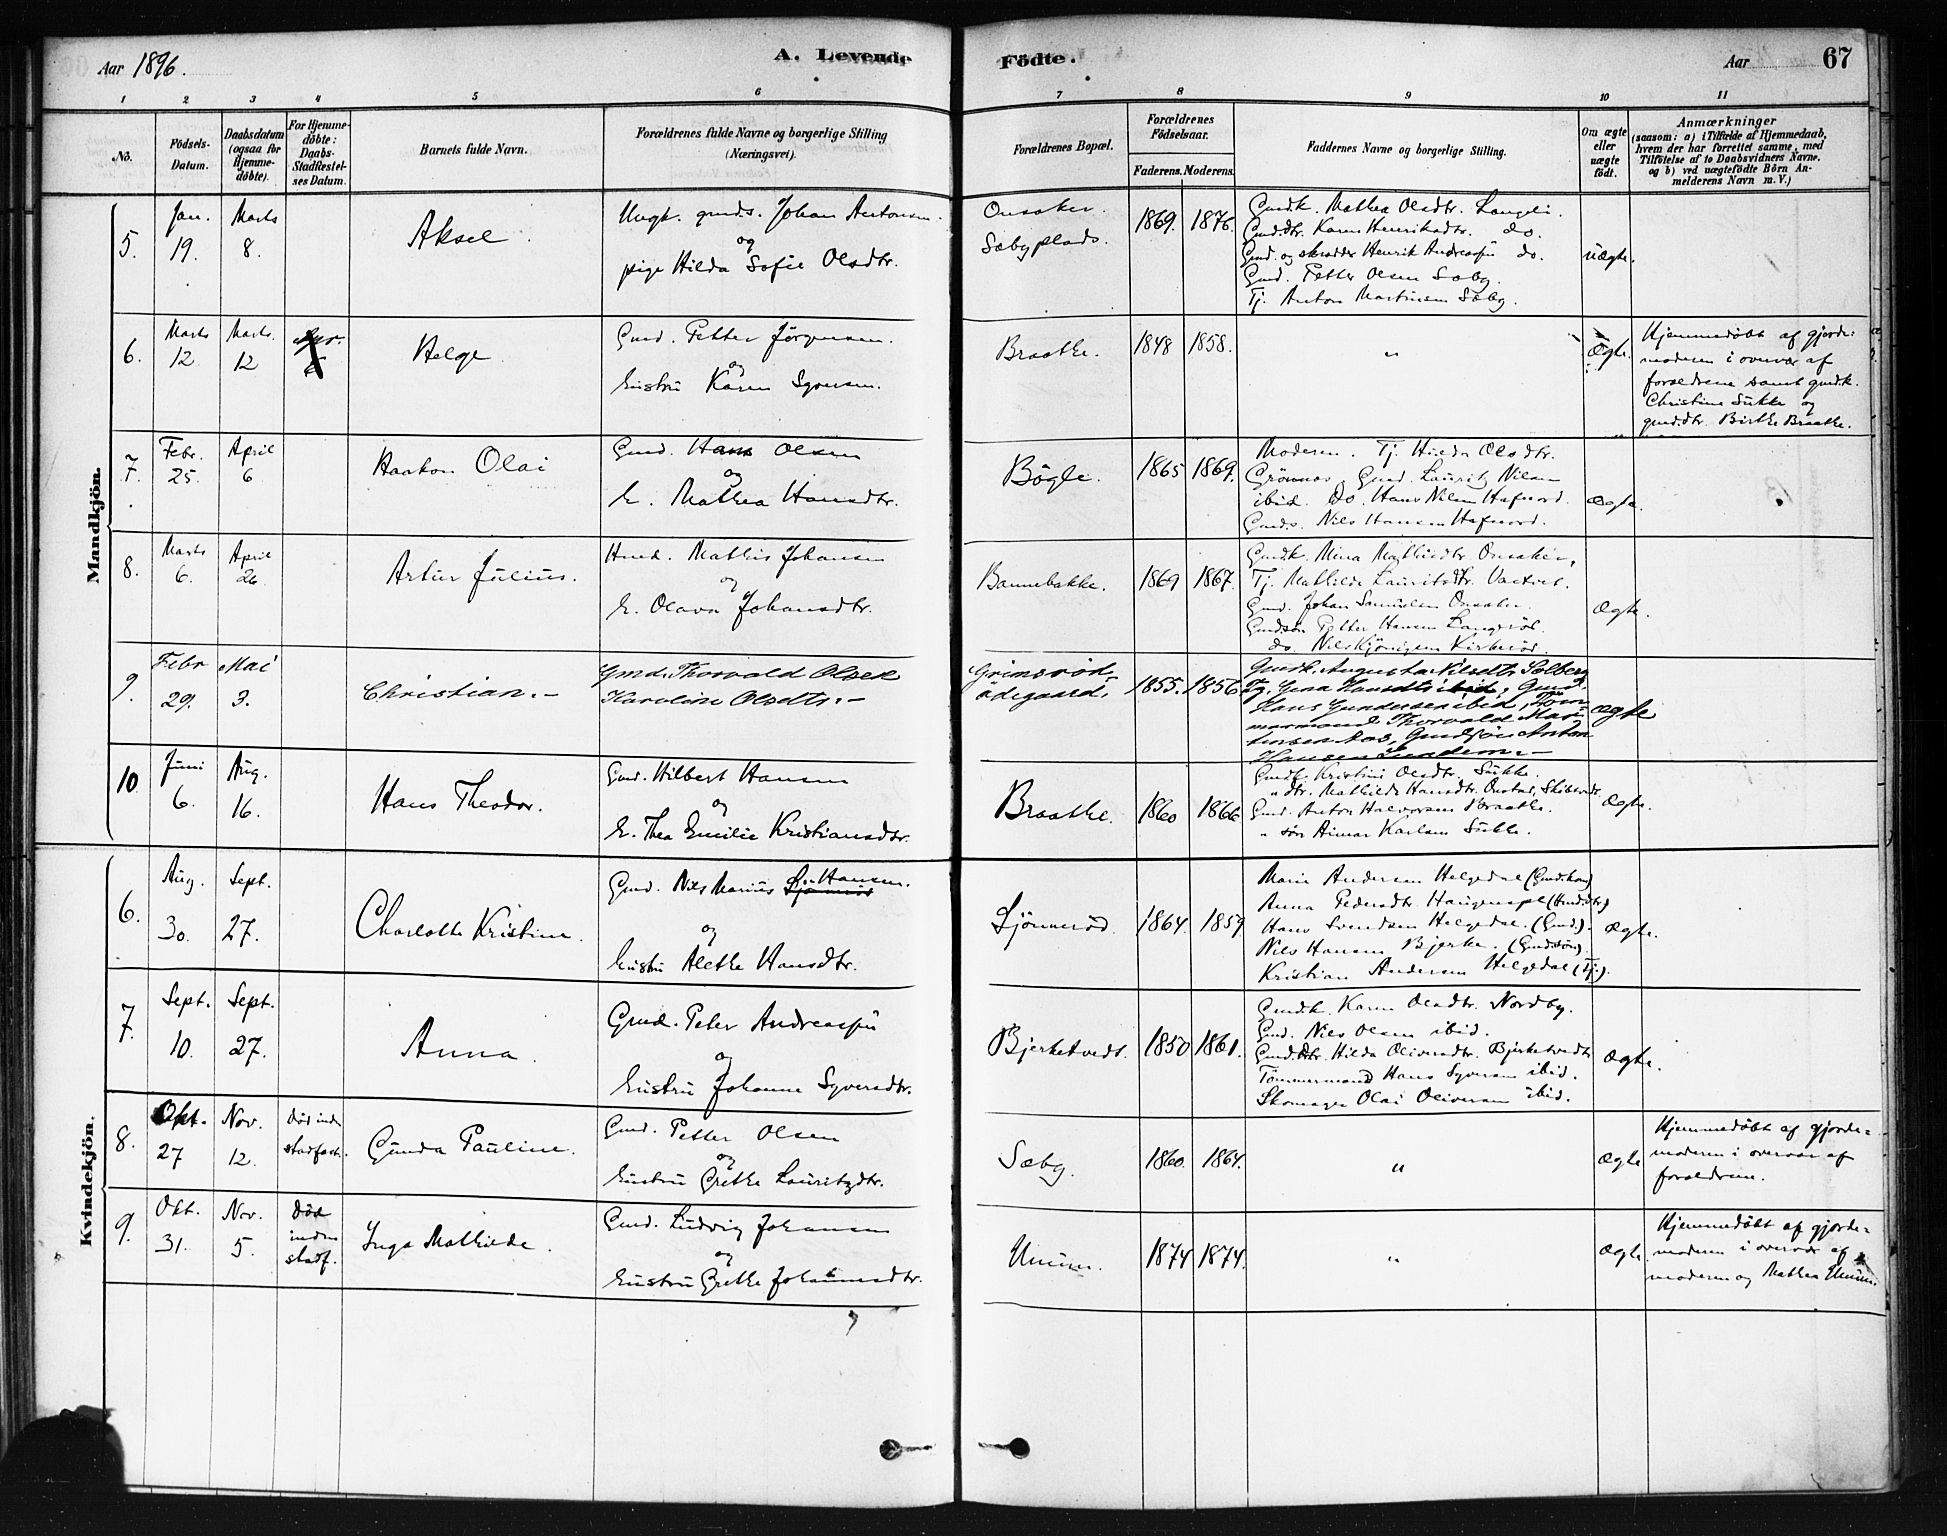 Aar 1896.
A. Levende
Födte.
Aar
67
1 2 3 4 5 6 7 8 9 10 11
No.
Födsels-
Datum.
Daabsdatum
(ogsaa för
Hjemme-
döbte).
For Hjemme-
döbte:
Daabs-
Stadfæstel-
ses Datum.
Barnets fulde Navn.
Forældrenes fulde Navne og borgerlige Stilling
(Næringsvei).
Forældrenes Bopæl.
Forældrenes
Födselsaar.
Faderens. Moderens.
Faddernes Navne og borgerlige Stilling.
Om ægte
eller
uægte
födt.
Anmærkninger
(saasom: a) i Tilfælde af Hjemmedaab,
hvem der har forrettet samme, med
Tilföielse af to Daabsvidners Navne,
og b) ved uægtefödte Börn An-
melderens Navn m. V.)
Mandkjön.
5.
Jan.
19.
Marts
8.
Aksel.
Ungk. gmds. Johan Antonsen.
og
pige Hilda Sofie Olsdtr.
Onsaker
Sæbyplads.
1869. 1876.
Gmdk. Mathea Olsdtr. Langeli.
Gmd.dtr. Karen Henriksdtr. do.
Gmd. og skrædder Henrik Andreassen do.
Gmd. Petter Olsen Sæby.
Tj. Anton Martinsen Sæby.
uægte.
6.
Marts
12
Marts.
12
Helge
Gmd. Petter Jörgensen.
og
hustru Karen Syversen.
Braathe.
1848 1858.
"
Ægte.
Hjemmedöbt af gjorde-
moderen i overvær af
forældrene samt gmdk.
Christine Sukke og
gmd.dtr. Birthe Braathe.
7.
Febr.
25.
April
6
Haakon Olai
Gmd. Hans Olsen
og
h. Mathea Hansdtr.
Bögle.
1865 1869.
Moderen. Tj. Hilda Olsdtr.
Grönnes, Gmd. Lauritz Nilsen
ibid. Do. Hans Nilsen Hafnord.
Gmds. Nils Hansen Hafnord.
Ægte.
8.
Marts
6.
April
26.
Artur Julius.
Hmd. Mathis Johansen
og
h. Olava Johansdtr.
Bannebakke.
1869 1867.
Gmdk. Mina Mathisdtr. Onsaker,
Tj. Mathilde Lauritsdtr.
Gmd. Johan Samuelsen Onsaker.
Gmdsön Petter Hansen
do. Nils Kjönigsen Kirkeröd.
Ægte.
9.
Febr
29.
Mai
3.
Christian.-
Gmd. Thorvald Olsen
Karoline Olsdtr.-
Grimsröd-
ödegaard.
1855. 1856
Gmdk. Augusta Nilsdtr. Solberg
Tj. Lena Hansdtr ibid, Gmd.
Hans Gundersen ibid, Töm-
mermand Thorvald Mar-
tinsen Aas, Gmdsön Anton
Hansen
Ægte
10.
Juni
6.
Aug.
16.
Hans Theodor.
Gmd. Hilbert Hansen
og
h. Thea Emilie Kristiansdtr.
Braathe.
1860 1866
Gmdk. Kristine Olsdtr. Sukke.
" dtr. Mathilde Hansdtr.
Gmd. Anton Halvorsen Braathe.
" sön Aimar Karlsen Sukke.
Ægte.
Kvindekjön.
6.
Aug.
30.
Sept.
27.
Charlotte Kristine.
Gmd. Nils Marius Hansen.
og
hustru Alethe Hansdtr.
Ljönneröd.
1864. 1859
Marie Andersen Helgedal (Gmd.kon)
Anna Pedersdtr. Haugensepl (Hmd.dtr)
Hans Svendsen Helgedal. (Gmd.).
Nils Hansen Bjerke. (Gmdsön)
Kristian Andersen Helgedal (Tj.).
Ægte.
7.
Sept.
10.
Sept.
27.
Anna.
Gmd. Peter Andreassen
og
hustru Johanne Syversdtr.
Bjerketvedt.
1850 1861.
Gmdk. Karen Olsdtr. Nordby.
Gmd. Nils Olsen ibid.
Gmd.dtr. Hilda Oliversdtr. Bjerketvedt
Tömmermand Hans Syversen ibid.
Skomager Olai Oliversen ibid.
Ægte.
8.
Okt.
27
Nov.
12.
Död inden
stadfæst.
Gunda Pauline.
Gmd. Petter Olsen
og
hustru Grethe Lauritzdtr.
Sæby.
1860. 1864.
"
Ægte
Hjemmedöbt af gjorde-
moderen i overvær af
forældrene.
9.
Okt.
31.
Nov.
5.
Död
inden
stadf.
Inga Mathilde.
Gmd. Ludvig Johansen
og
hustru Grethe Johannesdtr.
Unum.
1874 1874.
"
Ægte.
Hjemmedöbt af gjorde-
moderen i overvær af
moderen og Mathea Unum.